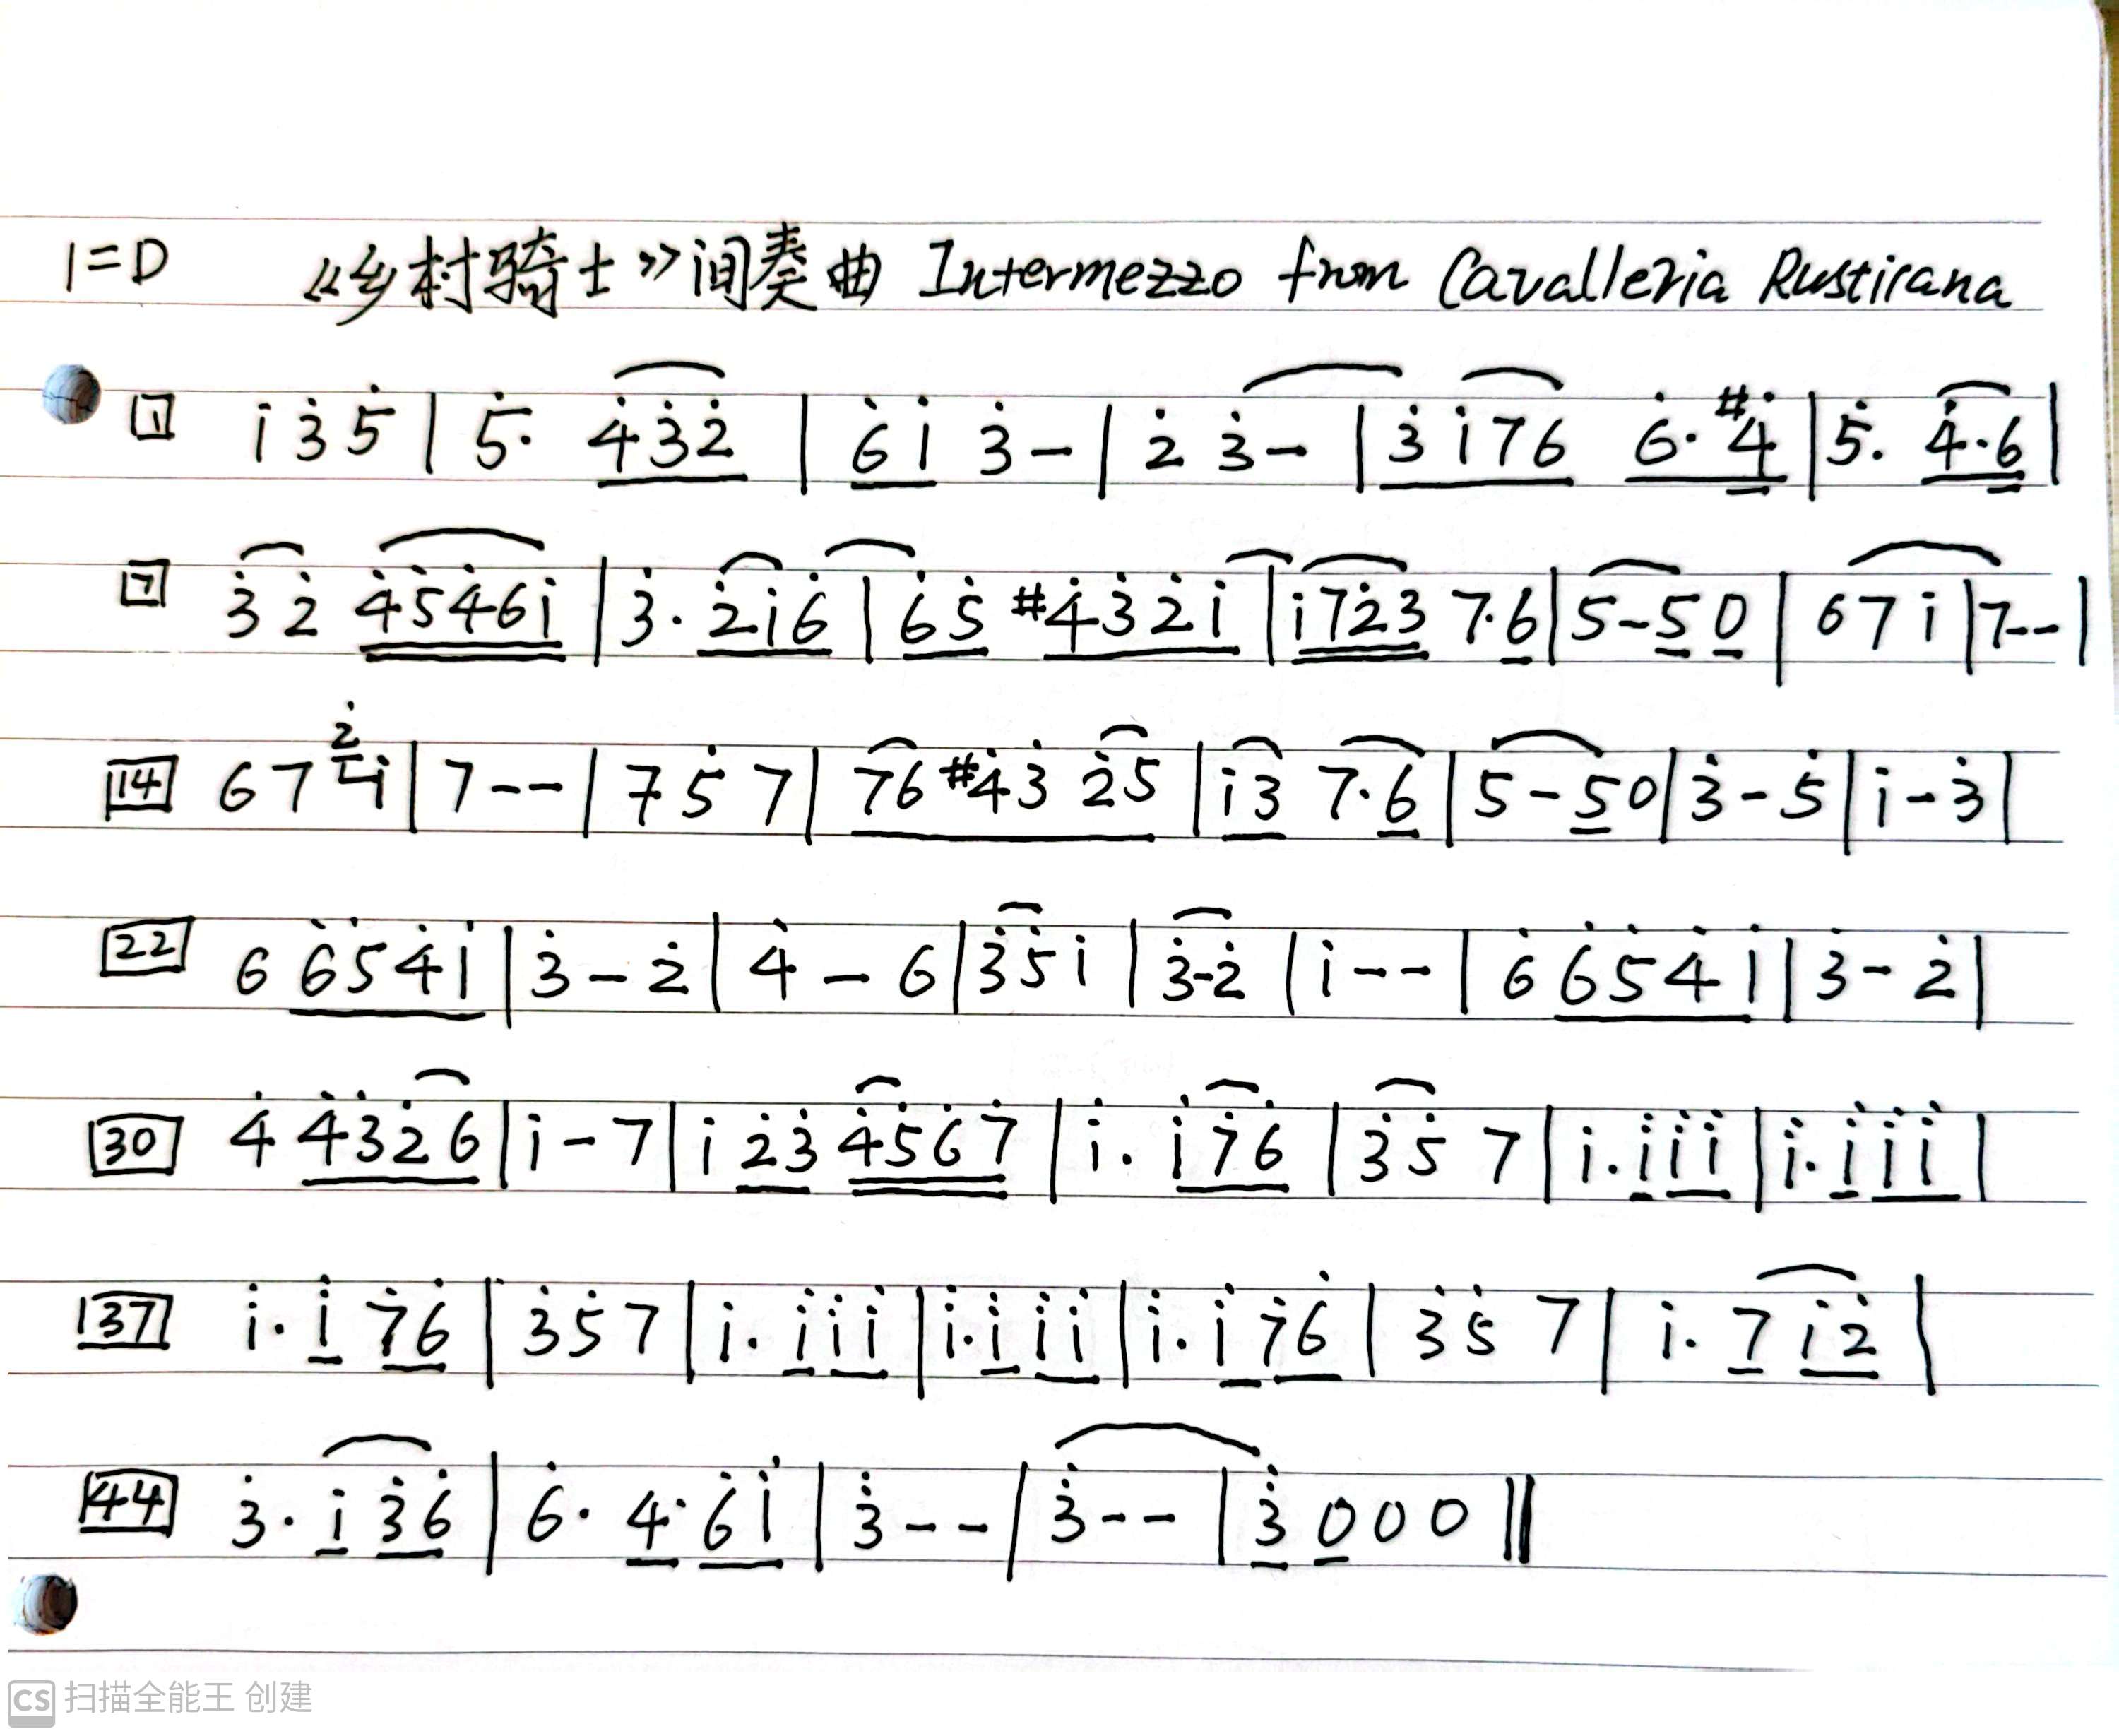 1=D 《乡村骑士》间奏曲 Intermezzo from Cavalleria Rusticana
1 i 3̇ 5̇ | 5̇· 4̇3̇2̇ | 6̇ i 3̇ - | 2̇ 3̇ - | 3̇ i 7 6 6̇· #4̇ | 5̇. 4̇·6̇ |
7 3̇ 2̇ 4̇5̇4̇6̇i | 3̇· 2̇i6̇ | 6̇5̇ #4̇3̇2̇i | i723̇ 7·6 | 5-50 | 67i | 7-- |
14 67 2̇i | 7-- | 7 5̇ 7 | 76 #4̇3̇ 2̇5 | i3 7·6 | 5-50 | 3̇-5̇ | i-3̇ |
22 6 6̇5̇4̇i | 3̇-2̇ | 4̇-6 | 3̇5̇i | 3̇-2̇ | i-- | 6̇ 6̇5̇4̇i | 3̇-2̇ |
30 4̇ 4̇3̇2̇6 | i-7 | i 2̇3̇ 4̇5̇6̇7̇ | i· i7̇6̇ | 3̇5̇ 7 | i.iii | i.iii |
37 i· i 7̇6̇ | 3̇5̇7 | i. iii | i.iii | i·i7̇6̇ | 3̇5̇ 7 | i. 7 i2̇ |
44 3̇· i 3̇6̇ | 6̇· 4̇ 6̇i | 3̇-- | 3̇-- | 3̇ 0 0 0 ||
CS 扫描全能王 创建